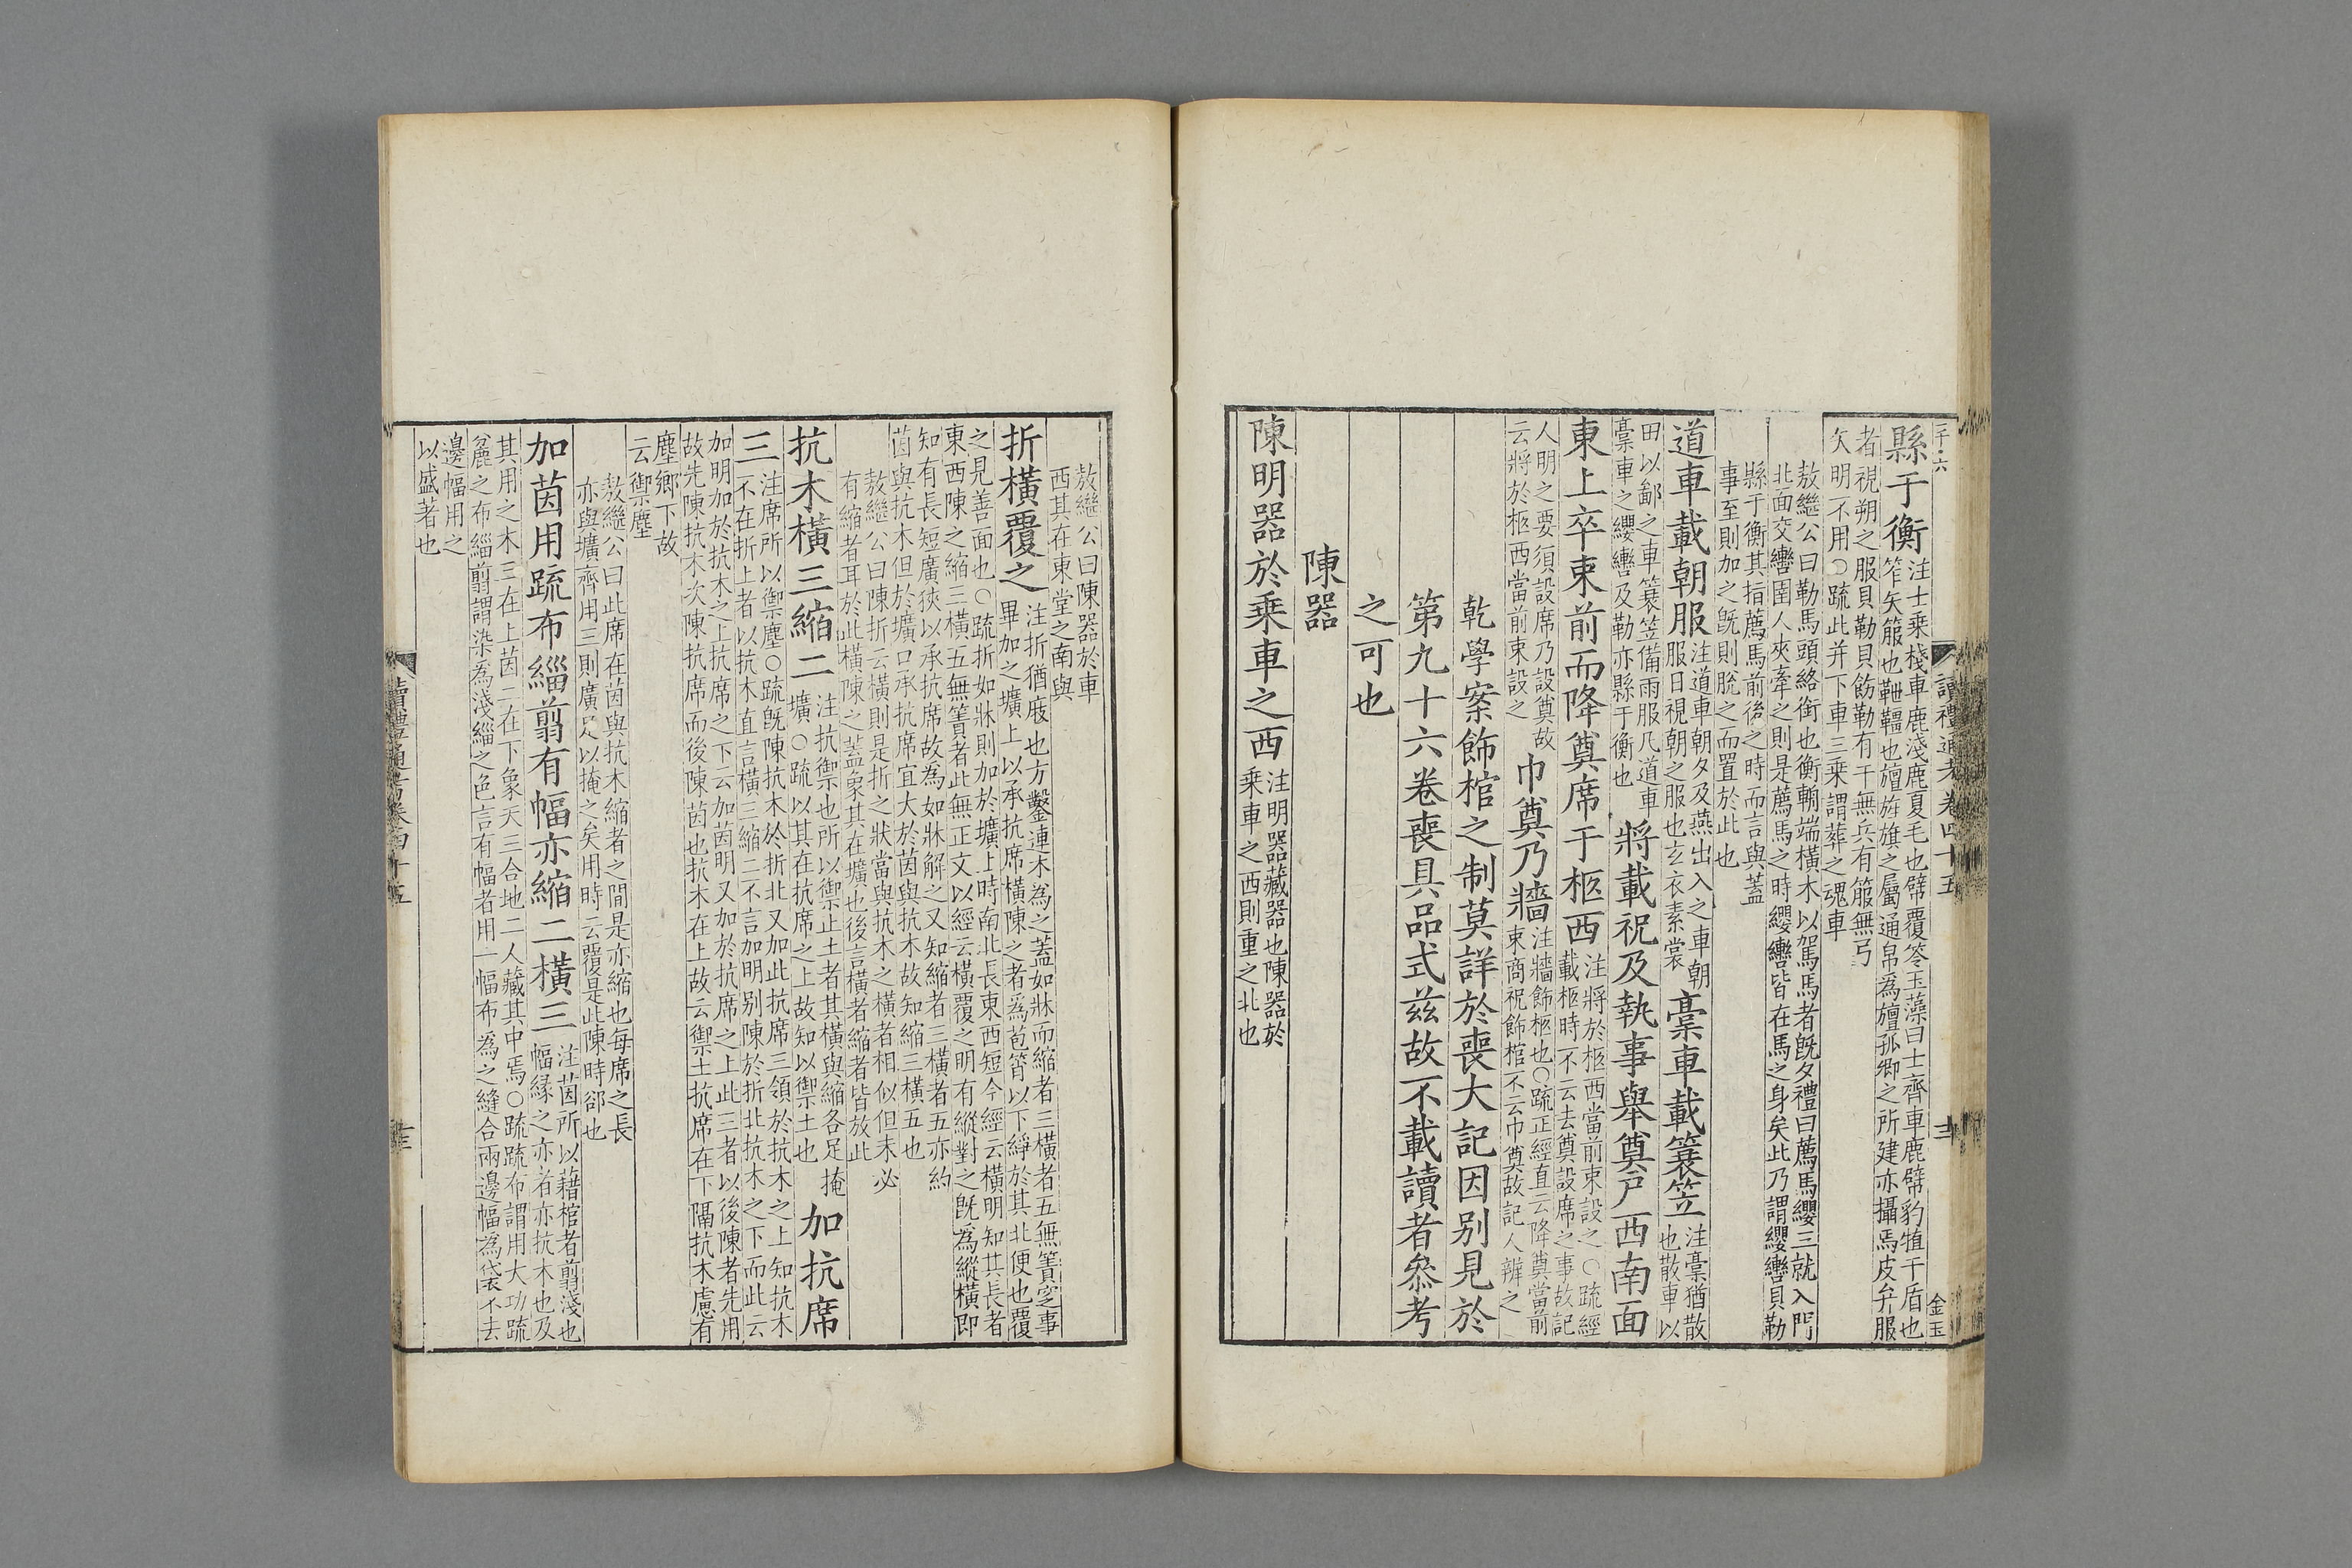 二千六
讀禮通考卷四十五
金玉
縣于衡
注士乗棧車鹿淺鹿夏毛也幦覆笭玉藻曰士齊車鹿幦豹犆干盾也
笮矢箙也靾韁也旜旌旗之屬通帛爲旜孤卿之所建亦攝焉皮弁服
者視朔之服貝勒貝飾勒有干無兵有箙無弓
矢明不用○疏此并下車三乗謂葬之魂車
敖繼公曰勒馬頭絡銜也衡輈端橫木以駕馬者旣夕禮曰薦馬纓三就入門
北面交轡圉人夾牽之則是薦馬之時纓轡皆在馬之身矣此乃謂纓轡貝勒
縣于衡其指薦馬前後之時而言與蓋
事至則加之旣則脫之而置於此也
道車載朝服
注道車朝夕及燕出入之車朝
服日視朝之服也玄衣素裳
稾車載簑笠
注稾猶散
也散車以
田以鄙之車簑笠備雨服凡道車
稾車之纓轡及勒亦縣于衡也
將載祝及執事舉奠戶西南面
東上卒束前而降奠席于柩西
注將於柩西當前束設之○疏經
載柩時不云去奠設席之事故記
人明之要須設席乃設奠故
云將於柩西當前束設之
巾奠乃牆
注牆飾柩也○疏正經直云降奠當前
束商祝飾棺不云巾奠故記人辨之
乾學案飾棺之制莫詳於喪大記因别見於
第九十六卷喪具品式兹故不載讀者叅考
之可也
陳器
陳明器於乗車之西
注明器藏器也陳器於
乗車之西則重之北也
敖繼公曰陳器於車
西其在東堂之南與
折橫覆之
注折猶庪也方鑿連木為之蓋如牀而縮者三橫者五無簀窆事
畢加之壙上以承抗席橫陳之者爲苞筲以下綪於其北便也覆
之見善面也○疏折如牀則加於壙上時南北長東西短今經云橫明知其長者
東西陳之縮三橫五無簀者此無正文以經云橫覆之明有縱對之旣爲縱橫即
知有長短廣狹以承抗席故為如牀解之又知縮者三橫者五亦約
茵與抗木但於壙口承抗席宜大於茵與抗木故知縮三橫五也
敖繼公曰陳折云橫則是折之狀當與抗木之橫者相似但未必
有縮者耳於此橫陳之蓋象其在壙也後言橫者縮者皆放此
抗木橫三縮二
注抗禦也所以禦止土者其橫與縮各足掩
壙○疏以其在抗席之上故知以禦土也
加抗席
三
注席所以禦塵○疏旣陳抗木於折北又加此抗席三領於抗木之上知抗木
不在折上者以抗木直言橫三縮二不言加明别陳於折北抗木之下而此云
加明加於抗木之上抗席之下云加茵明又加於抗席之上此三者以後陳者先用
故先陳抗木次陳抗席而後陳茵也抗木在上故云禦土抗席在下隔抗木慮有
塵鄉下故
云禦塵
敖繼公曰此席在茵與抗木縮者之間是亦縮也每席之長
亦與壙齊用三則廣足以掩之矣用時云覆是此陳時郤也
加茵用疏布緇翦有幅亦縮二橫三
注茵所以藉棺者翦淺也
幅緣之亦者亦抗木也及
其用之木三在上茵二在下象天三合地二人藏其中焉○疏疏布謂用大功疏
麄之布緇翦謂染爲淺緇之色言有幅者用一幅布爲之縫合兩邊幅爲帒不去
邊幅用之
以盛著也
讀禮通考卷四十五